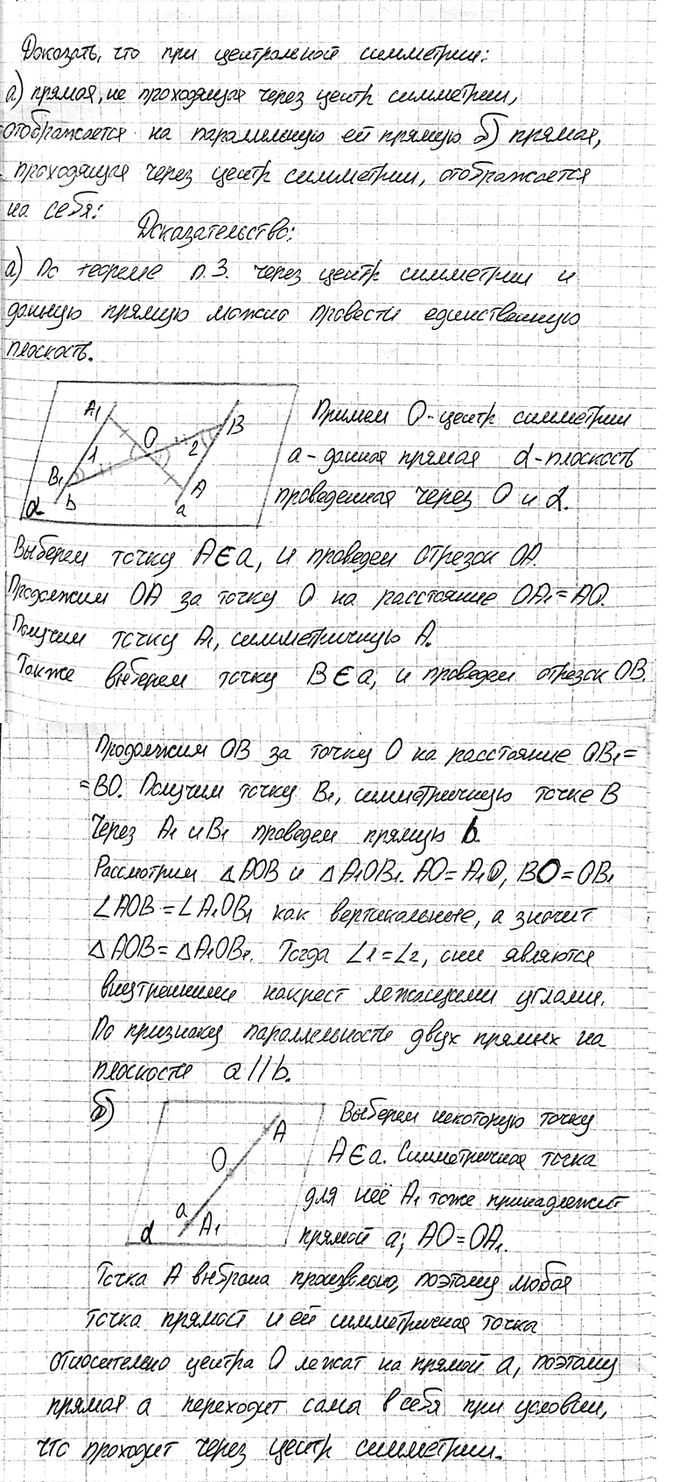 Доказать, что при центральной симметрии:
а) прямая, не проходящая через центр симметрии,
отображается на параллельную ей прямую б) прямая,
проходящая через центр симметрии, отображается
на себя:
Доказательство:
а) По теореме п.3. через центр симметрии и
данную прямую можно провести единственную
плоскость.
A₁ O B 1 2 B₁ b A a α
Примем O-центр симметрии
a-данная прямая α-плоскость
проведенная через O и α.
Выберем точку A∈a, и проведем отрезок OA.
Продолжим OA за точку O на расстояние OA₁=AO.
Получим точку A₁, симметричную A.
Также выберем точку B∈a, и проведем отрезок OB.
Продолжим OB за точку O на расстояние OB₁=
=BO. Получим точку B₁, симметричную точке B
Через A₁ и B₁ проведем прямую b.
Рассмотрим △AOB и △A₁OB₁. AO=A₁O, BO=OB₁
∠AOB=∠A₁OB₁ как вертикальные, а значит
△AOB=△A₁OB₁. Тогда ∠1=∠2, они являются
внутренними накрест лежащими углами.
По признаку параллельности двух прямых на
плоскости a||b.
б)
A O a A₁ α
Выберем некоторую точку
A∈a. Симметричная точка
для неё A₁ тоже принадлежит
прямой a; AO=OA₁.
Точка A выбрана произвольно, поэтому любая
точка прямой и ей симметричная точка
относительно центра O лежат на прямой a, поэтому
прямая a переходит сама в себя при условии,
что проходит через центр симметрии.